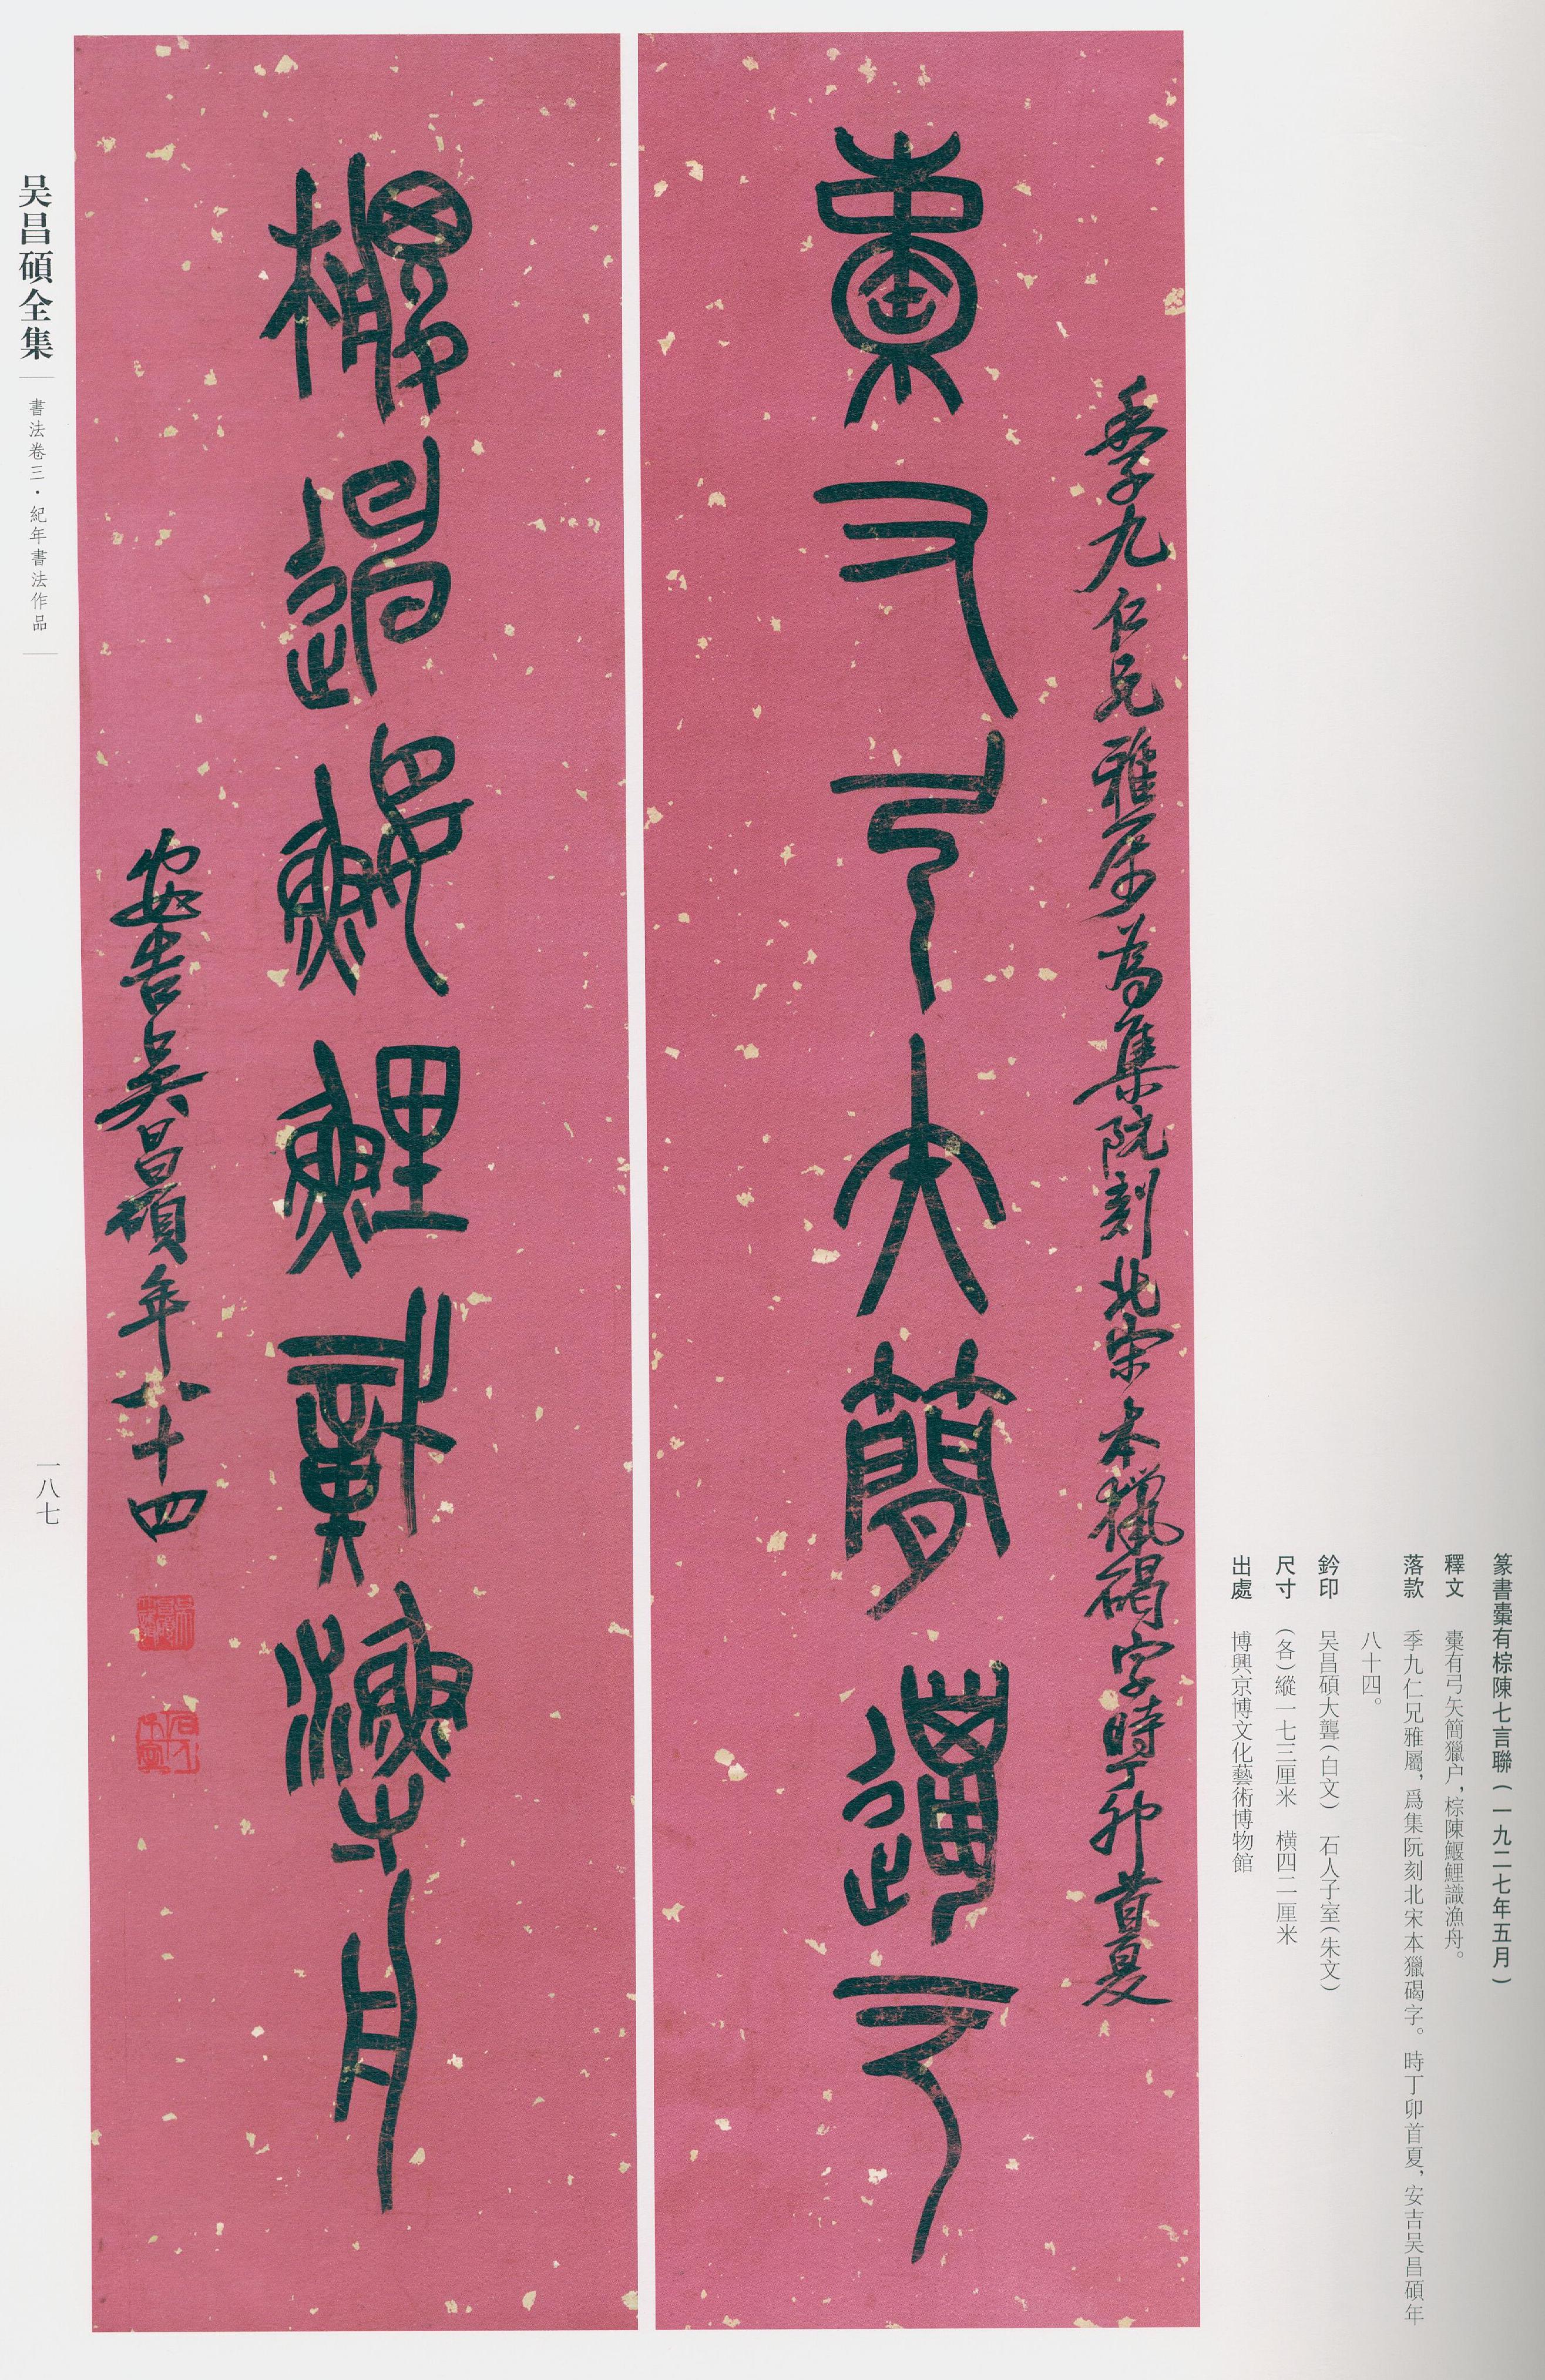 篆書橐有棕陳七言聯(一九二七年五月)
釋文 橐有弓矢簡獵户,棕陳鰋鯉識漁舟。
落款 季九仁兄雅屬,爲集阮刻北宋本獵碣字。時丁卯首夏,安吉吴昌碩年
八十四。
鈐印 吴昌碩大聾(白文) 石人子室(朱文)
尺寸 (各)縱一七三厘米 横四二厘米
出處 博興京博文化藝術博物館
季九仁兄雅屬為集阮刻北宋本獵碣字時丁卯首夏
橐有弓矢簡獵户
棕陳鰋鯉識漁舟
安吉吴昌碩年八十四
吴昌碩大聾
石人子室
吴昌碩全集
書法卷三·紀年書法作品
一八七